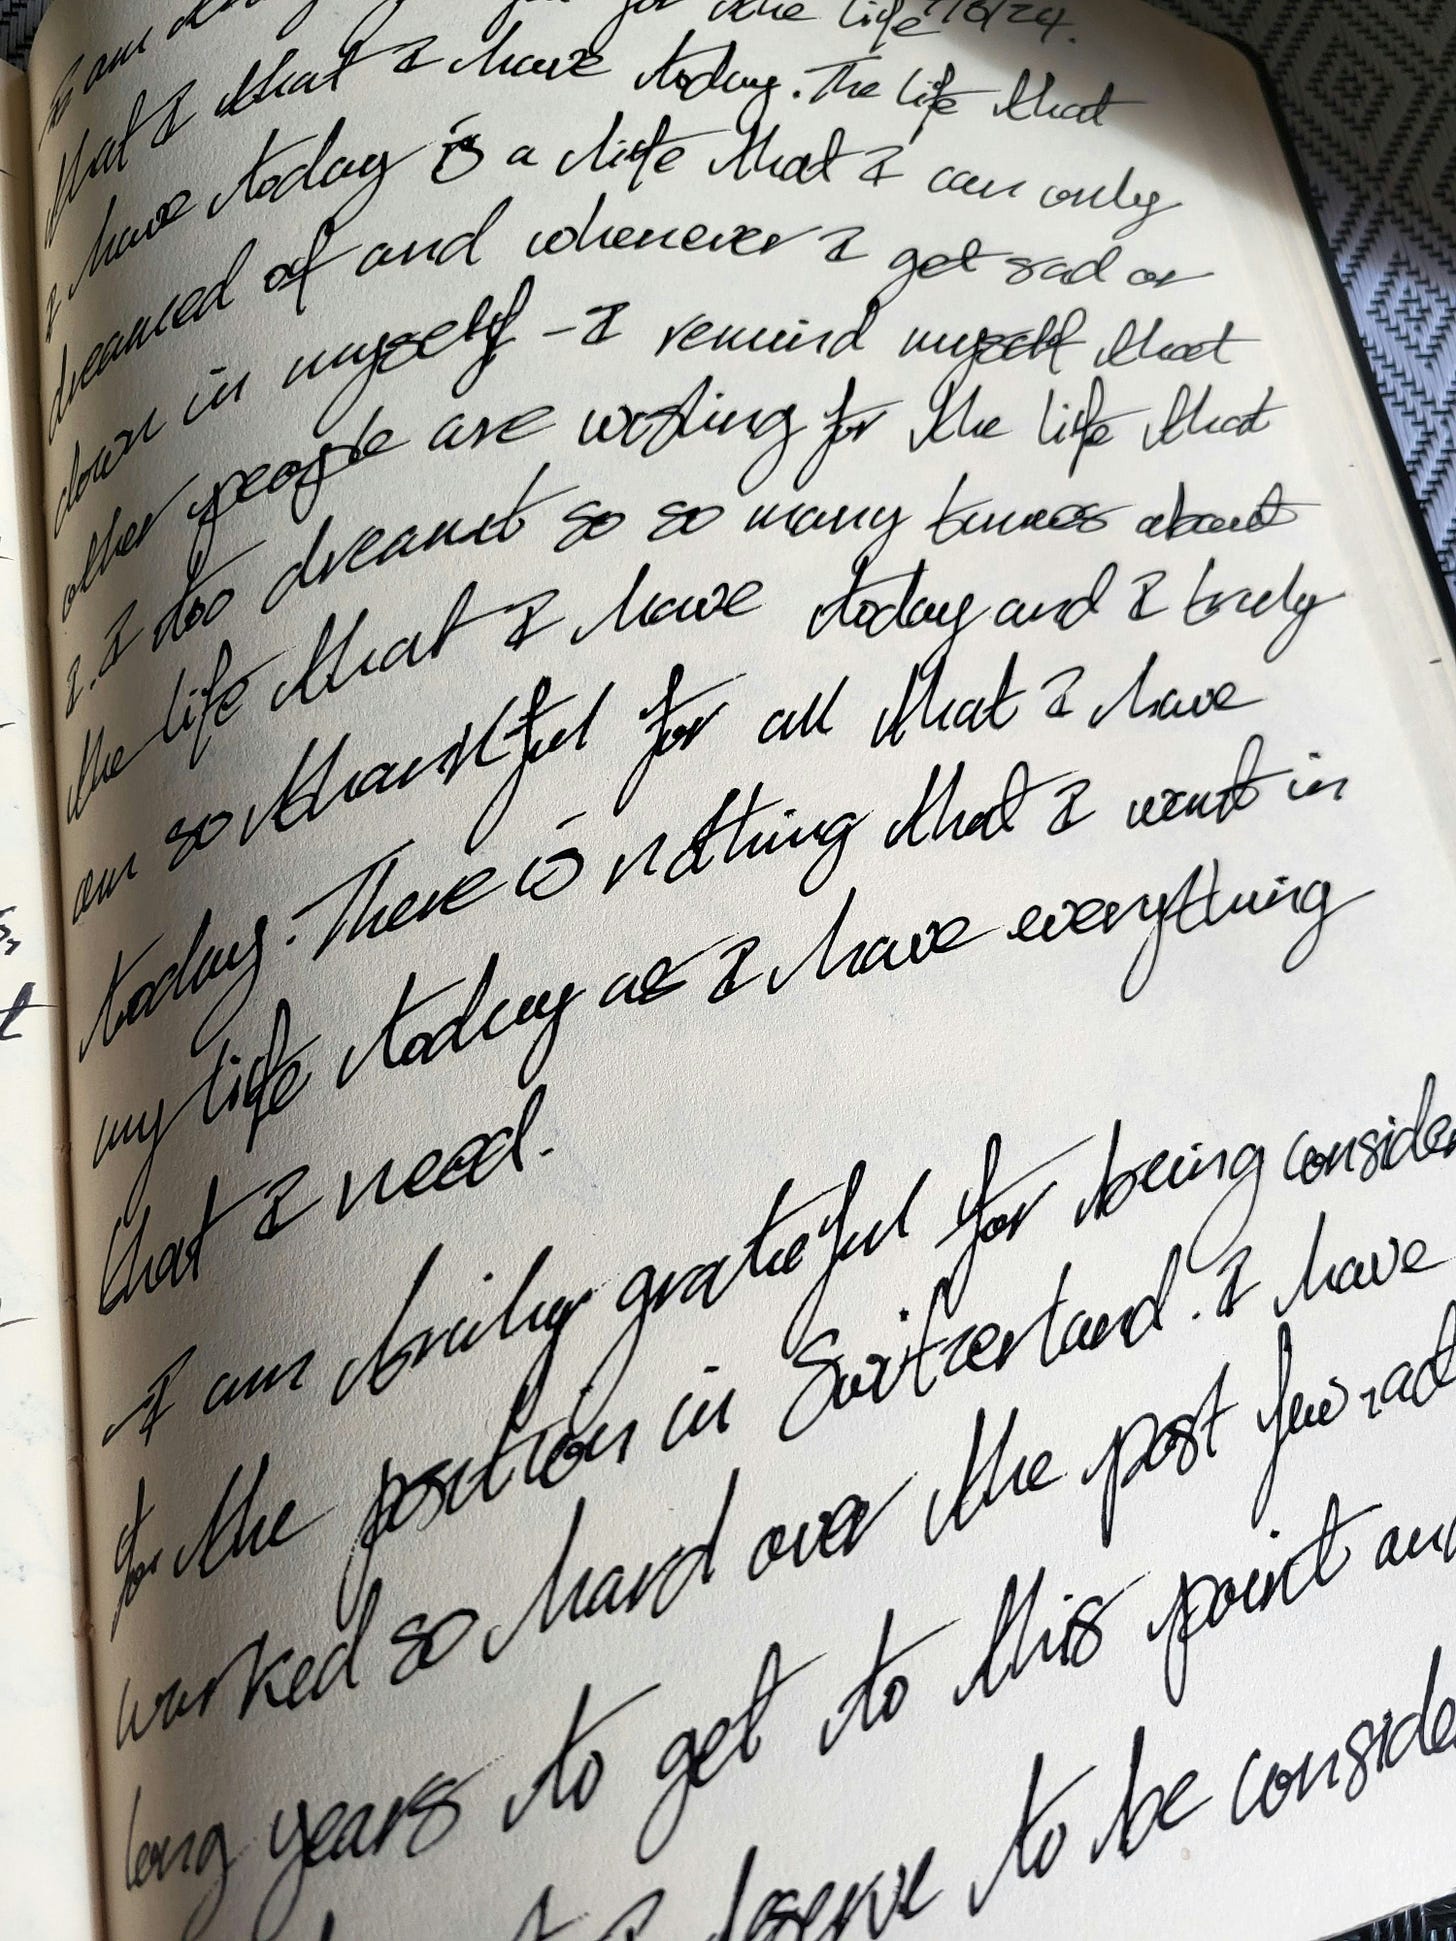 I am for the life /6/24.
that I that I have today. The life that
I have today is a life that I can only
dreamed of and whenever I get sad or
down in myself - I remind myself that
other people are wishing for the life that
I. I too dreamt so so many times about
the life that I have today and I truly
am so thankful for all that I have
today. There is nothing that I want in
my life today as I have everything
that I need.
I am truly grateful for being consider
for the position in Switzerland. I have
worked so hard over the past few
long years to get to this point and
I deserve to be conside